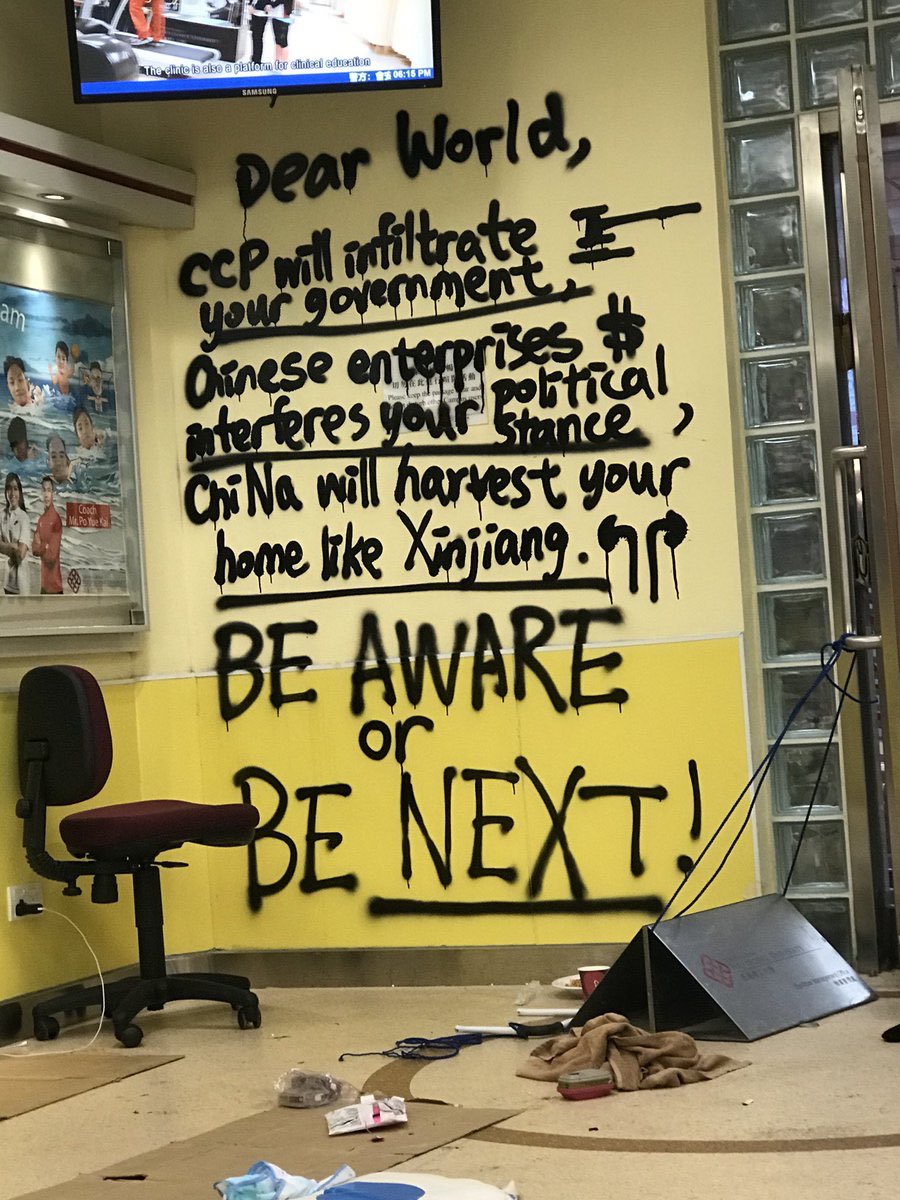 The clinic is also a platform for clinical education
06:15 PM
SAMSUNG
Dear World,
CCP will infiltrate
your government,
Chinese enterprises $
interferes your political
stance,
ChiNa will harvest your
home like Xinjiang.
BE AWARE
or
BE NEXT!
am
Coach
Mr. Po Yue Kai